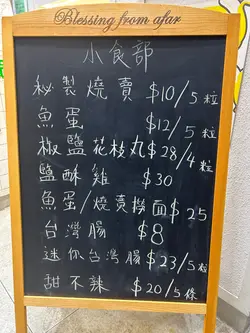 Blessing from afar
小食部
秘製燒賣 $10/5粒
魚蛋 $12/5粒
椒鹽花枝丸 $28/4粒
鹽酥雞 $30
魚蛋/燒賣撈面 $25
台灣腸 $8
迷你台灣腸 $23/5粒
甜不辣 $20/5條